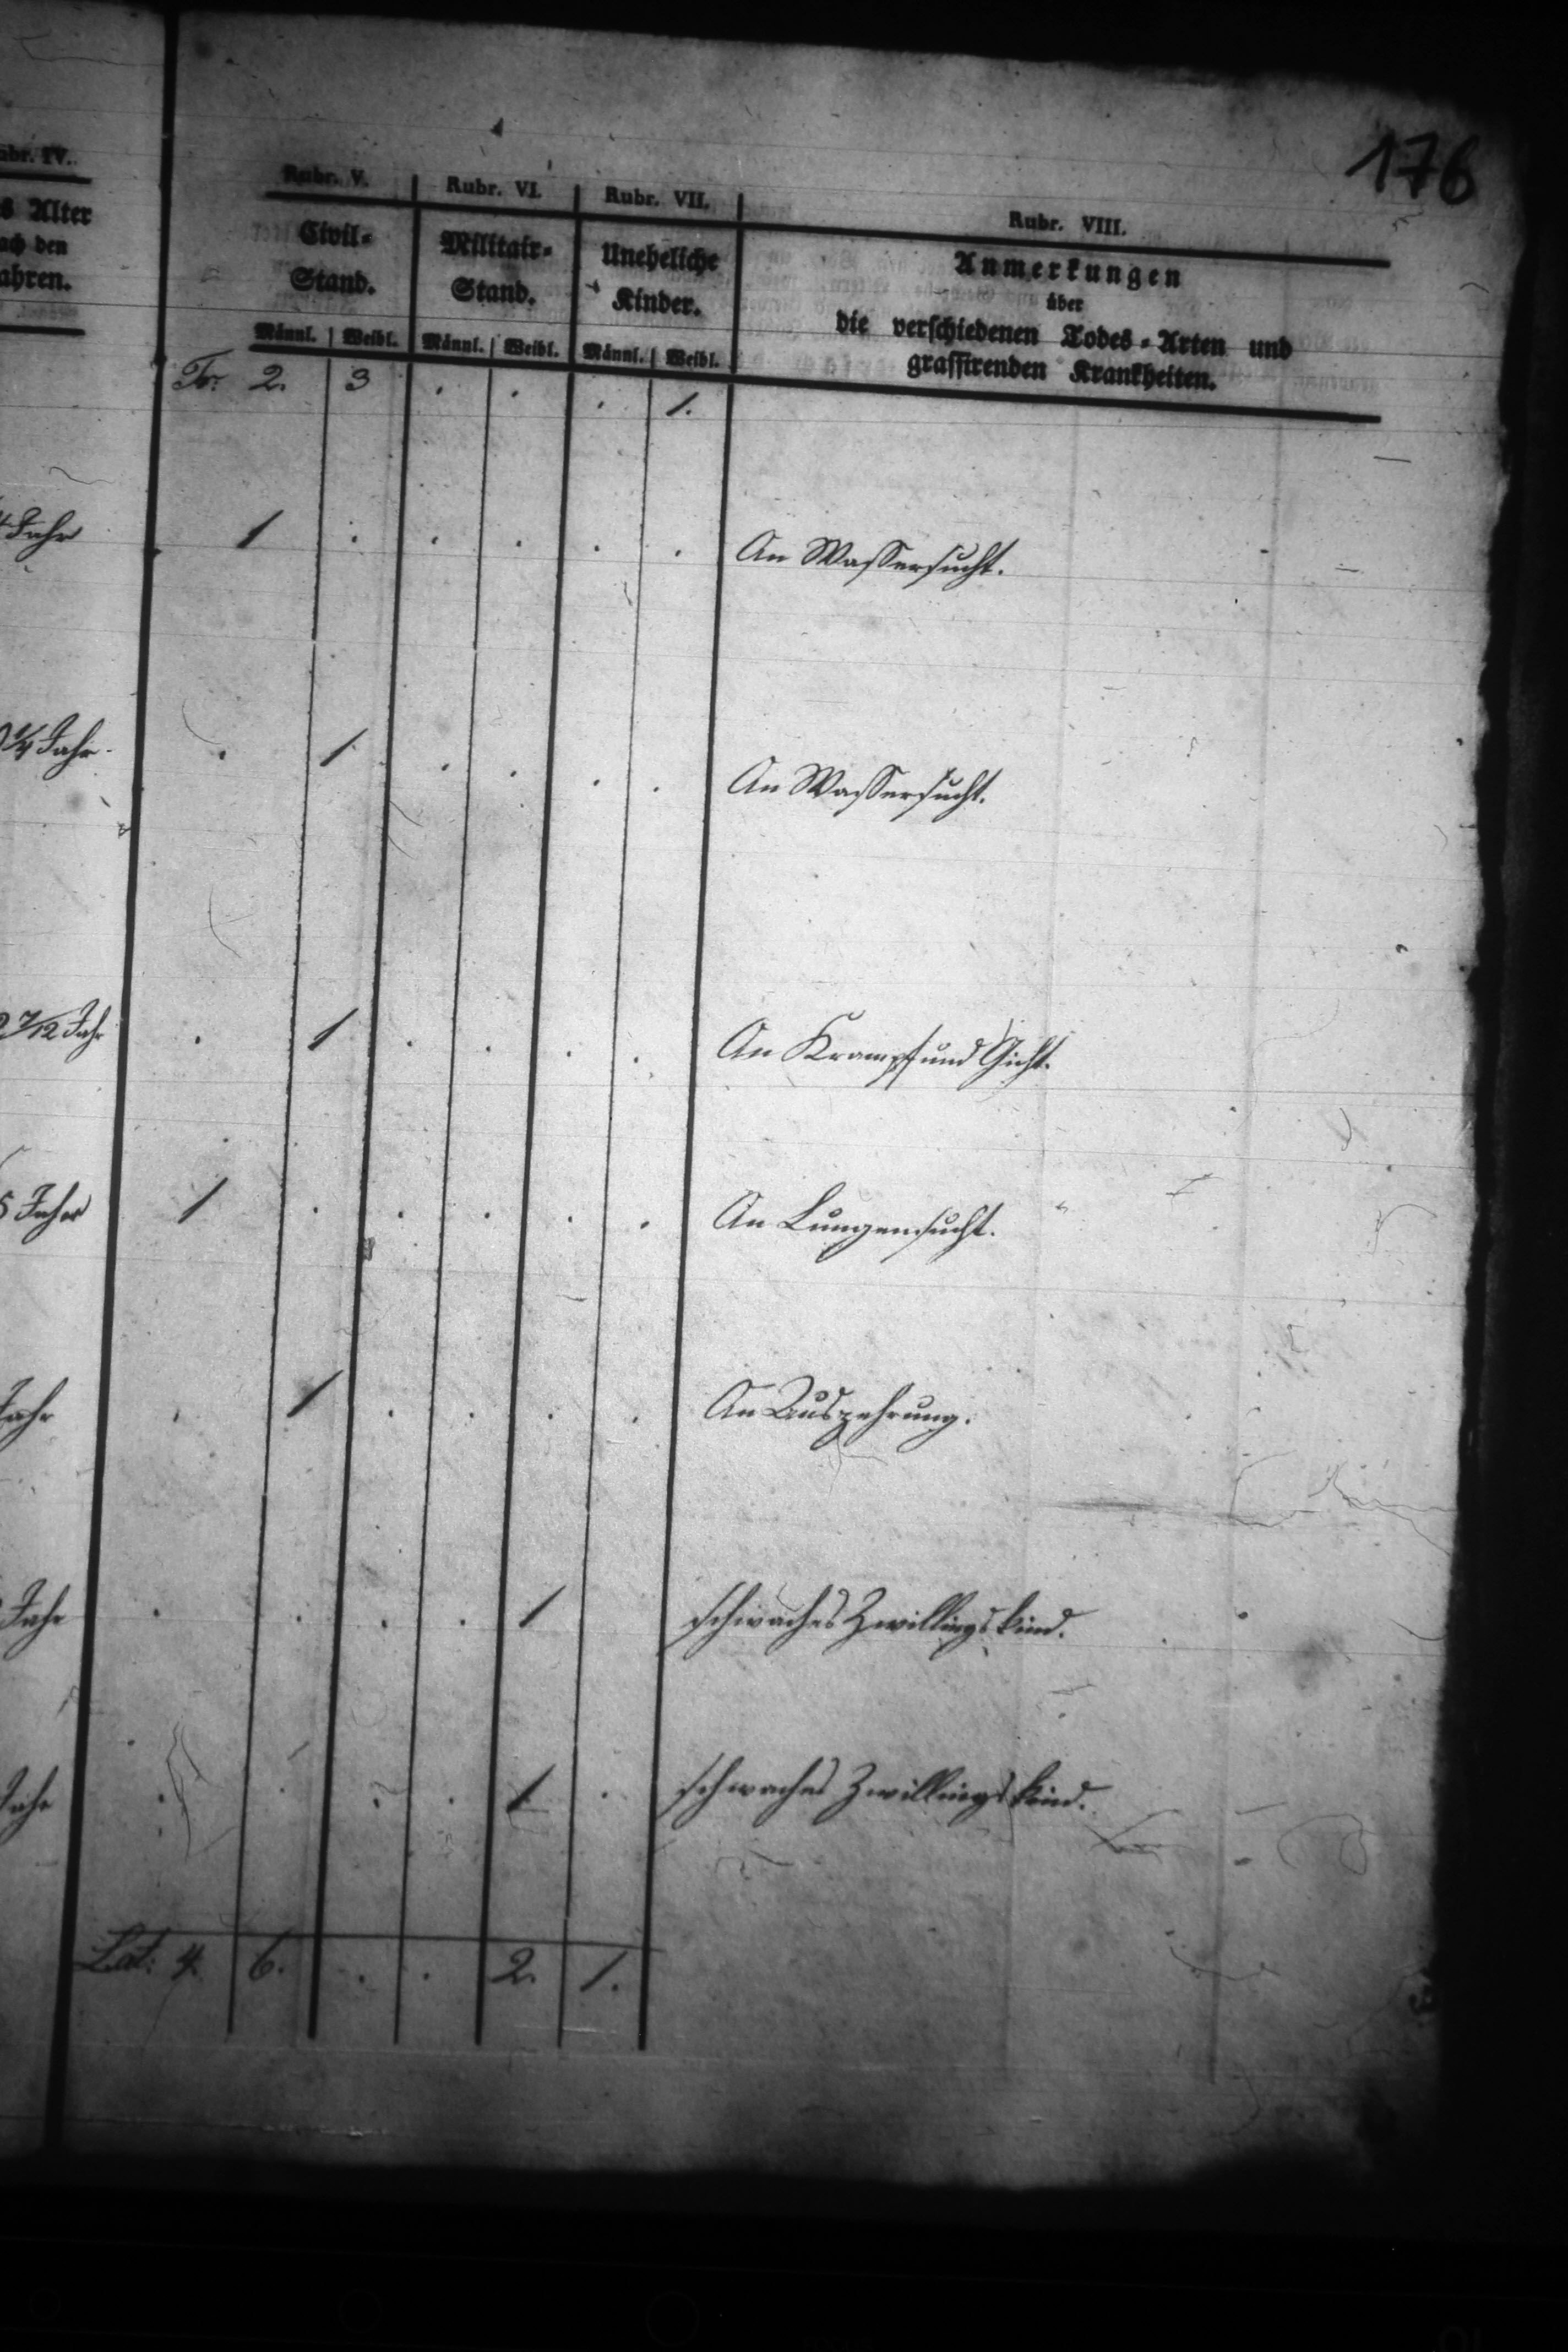 176
Rubr. IV.
s Alter
ach den
ahren.
Rubr. V. Rubr. VI. Rubr. VII. Rubr. VIII.
Civil-Stand. Militair-Stand. Uneheliche Kinder. Anmerkungen
über
die verschiedenen Todes-Arten und
grassirenden Krankheiten.
Männl. Weibl. Männl. Weibl. Männl. Weibl.
Tr: 2. 3 . . . 1.
Jahr 1 . . . . . An Wassersucht.
1/4 Jahr. . 1 . . . . An Wassersucht.
2 7/12 Jahr . 1 . . . . An Krampf und Gicht.
5 Jahr 1 . . . . . An Lungensucht.
Jahr . 1 . . . . An Auszehrung.
Jahr . . . . 1 schwaches Zwillingskind.
Jahr . . . . 1 . schwaches Zwillingskind.
Lat: 4. 6. . . 2. 1.